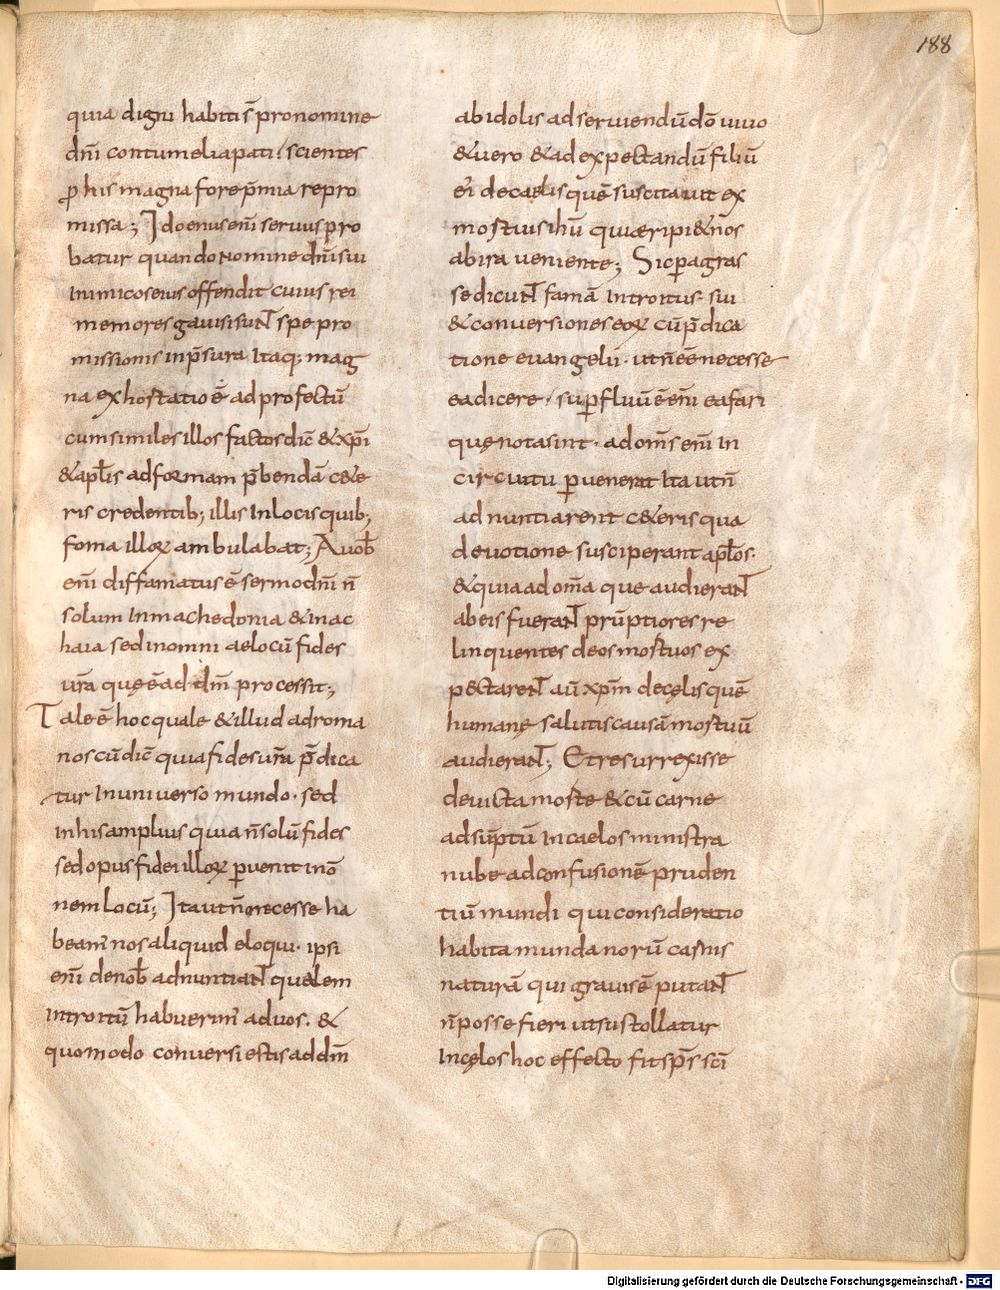 188
quia digni habiti s̄ pro nomine
dn̄i contumelia pati; scientes
ꝓ his magna fore p̄mia repro
missa; Idoenus eni̅ servus pro
batur quando nomine dn̄i sui
inimicos eius offendit cuius rei
memores gavisi sunt spe pro
missionis inp̄sura itaq; mag
na exhortatio ē ad profectū
cum similes illos factos dic̄ & xp̄i
& apl̄is ad formam p̄bendā c&e
ris credentib; illis in locis quib;
foma illoꝝ ambulabat; A vob̄
eni̅ diffamatus ē sermo dn̄i n̄
solum in machedonia & in ac
haia sed in omni aelocū fides
ur̄a quę ē ad dm̄ processit;
Tale ē hoc quale & illud ad roma
nos cū dic̄ quia fides ur̄a p̄dica
tur in universo mundo · sed
in his amplius quia n̄ solū fides
sed opus fidei illoꝝ ꝑvenit in ō
nem locū; Ita ut n̄ necesse ha
beam' nos aliquid eloqui · ipsi
eni̅ de nob̄ adnuntiant qualem
introitū habuerim' ad vos · &
quomodo conversi estis ad dm̄
ab idolis ad serviendū dō vivo
& vero & ad expectandū filiū
ei' de caelis quē suscitavit ex
mortuis ihū qui aeripi& nos
ab ira veniente; Sic ꝑ agras
se dicunt famā introitus sui
& conversiones eoꝝ cū p̄dica
tione evangelii · ut n̄ eē necesse
ea dicere · suꝑfluū ē eni̅ ea fari
quę nota sint · ad oms̄ eni̅ in
circuitu ꝑvenerat ita ut n̄
adnuntiarent c&eris qua
devotione susciperant apl̄os ·
& quia ad om̄a que audierant
ab eis fuerant prūptiores re
linquentes deos mortuos ex
pectarent aū xp̄m de cęlis quē
humanę salutis causā mortuū
audierant; Et resurrexisse
devicta morte & cū carne
adsūptū in caelos ministra
nube ad confusionē pruden
tiū mundi qui consideratio
habita mundanorū carnis
naturā qui gravisē putant
n̄ posse fieri ut sustollatur
in cęlos hoc effecto fit sp̄s sc̄i
Digitalisierung gefördert durch die Deutsche Forschungsgemeinschaft - DFG